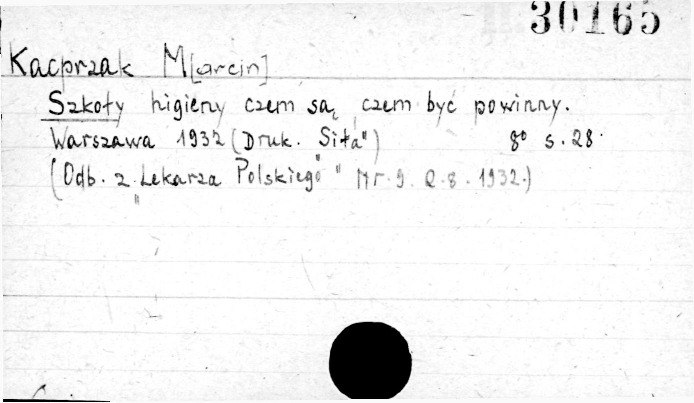 30165
Kacprzak M[arcin]
Szkoły higieny czem są, czem być powinny.
Warszawa 1932 (Druk. "Siła") 8° s. 28.
(Odb. z "Lekarza Polskiego" Nr. 9. R. 8. 1932.)